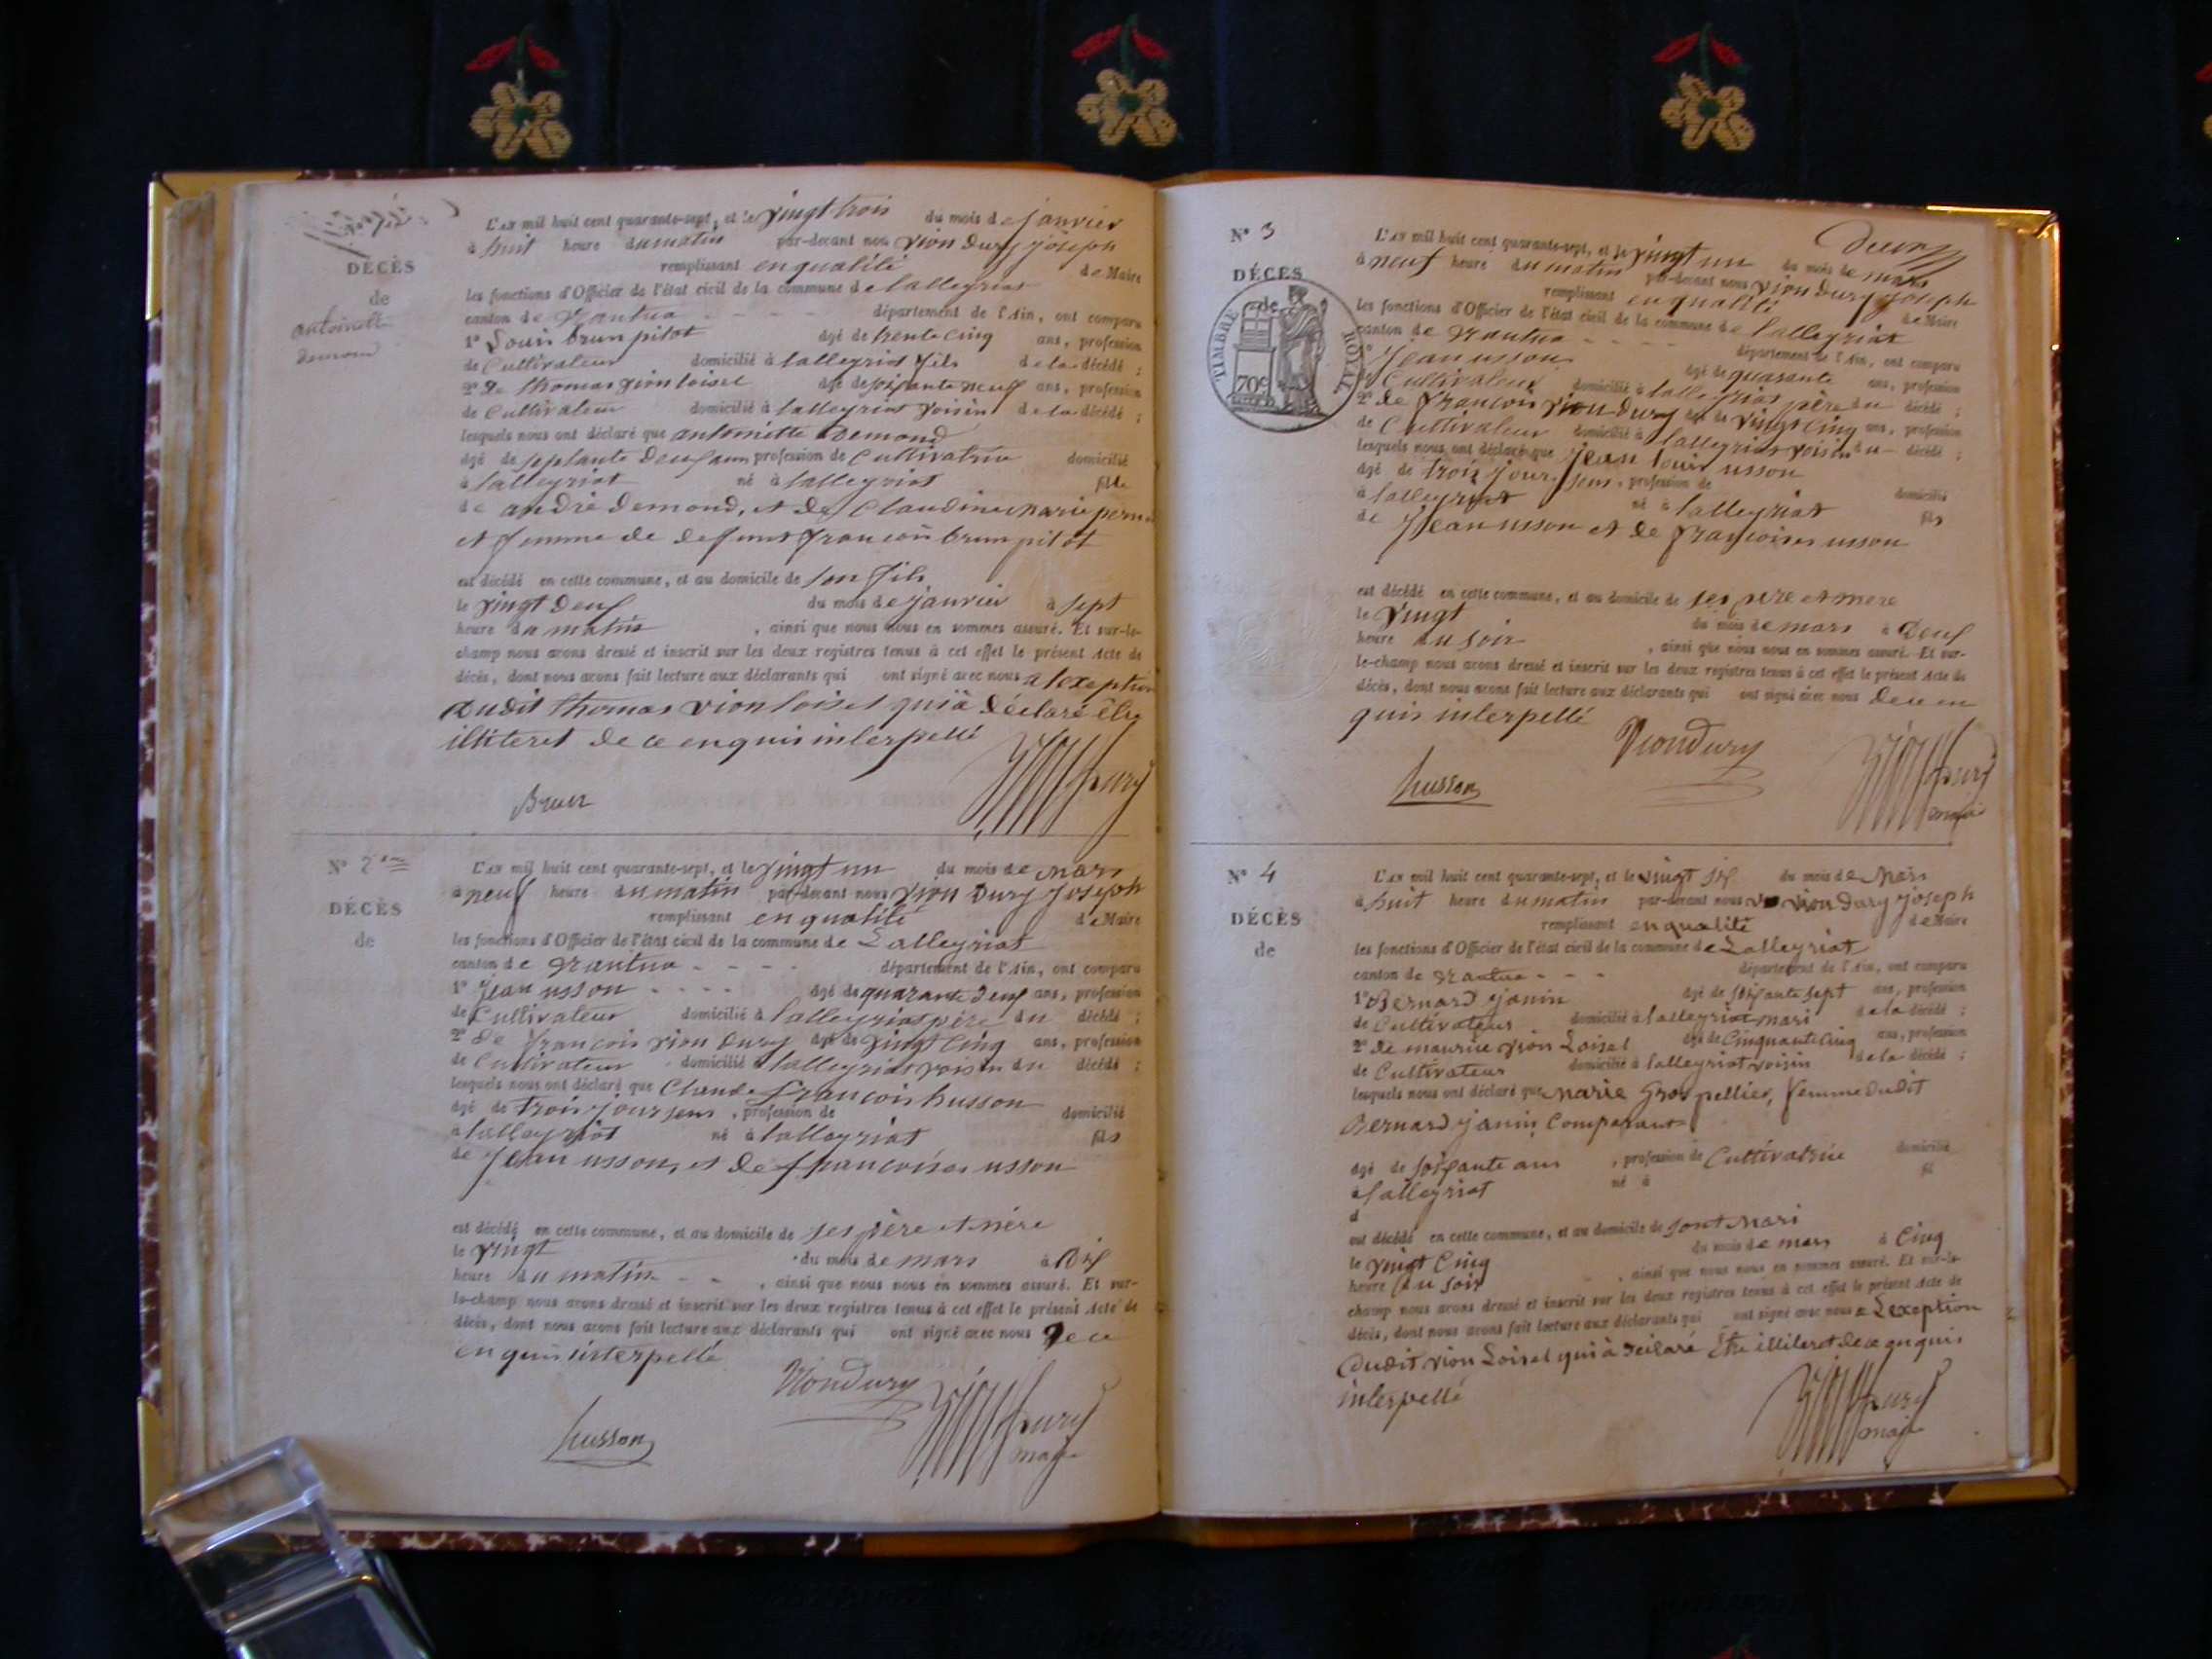 DÉCÈS
de
antoinette
demond
L'AN mil huit cent quarante-sept, et le vingt trois du mois de janvier
à huit heure du matin par-devant nous vion Dury joseph
remplissant en qualité de Maire
les fonctions d'Officier de l'état civil de la commune de lalleyriat
canton de nantua - - - - département de l'Ain, ont comparu
1° Louis brun pilot âgé de trente cinq ans, profession
de Cultivateur domicilié à lalleyriat fils de la décédé ;
2° de thomas vion loisel âgé de soixante neuf ans, profession
de Cultivateur domicilié à lalleyriat voisin de la décédé ;
lesquels nous ont déclaré que antoinette Demond
âgé de septante deux ans profession de Cultivatrice domicilié
à lalleyriat né à lalleyriat fille
de andré demond, et de Claudine marie
et femme de defunt francois brun pilot
est décédé en cette commune, et au domicile de son fils
le vingt deux du mois de janvier à sept
heure du matin , ainsi que nous nous en sommes assuré. Et sur-le-
champ nous avons dressé et inscrit sur les deux registres tenus à cet effet le présent Acte de
décès, dont nous avons fait lecture aux déclarants qui ont signé avec nous a lexeption
dudit thomas vion loisel qui à déclaré être
illiteret de ce enquis interpellé
Brun Dury
N° 2
DÉCÈS
de
L'AN mil huit cent quarante-sept, et le vingt un du mois de mars
à neuf heure du matin par-devant nous vion Dury Joseph
remplissant en qualité de Maire
les fonctions d'Officier de l'état civil de la commune de Lalleyriat
canton de nantua - - - - département de l'Ain, ont comparu
1° Jean usson - - - - âgé de quarante deux ans, profession
de Cultivateur domicilié à lalleyriat père du décédé ;
2° de francois vion Dury âgé de vingt Cinq ans, profession
de Cultivateur domicilié à lalleyriat voisin du décédé ;
lesquels nous ont déclaré que Claude francois husson
âgé de trois jour sans , profession de domicilié
à lalleyriat né à lalleyriat fils
de Jean usson, et de francoise usson
est décédé en cette commune, et au domicile de ses père et mère
le vingt du mois de mars à Dix
heure du matin - - , ainsi que nous nous en sommes assuré. Et sur-
le-champ nous avons dressé et inscrit sur les deux registres tenus à cet effet le présent Acte de
décès, dont nous avons fait lecture aux déclarants qui ont signé avec nous De ce
enquis interpellé
Viondury
husson Dury
maire
N° 3
DÉCÈS
de
TIMBRE ROYAL
70c
L'AN mil huit cent quarante-sept, et le vingt un du mois de mars
à neuf heure du matin par-devant nous vion Dury joseph
remplissant en qualité de Maire
les fonctions d'Officier de l'état civil de la commune de lalleyriat
canton de nantua - - - - département de l'Ain, ont comparu
1° Jean usson âgé de quarante ans, profession
de Cultivateur domicilié à lalleyriat père du décédé ;
2° de francois vion Dury âgé de vingt Cinq ans, profession
de Cultivateur domicilié à lalleyriat voisin du décédé ;
lesquels nous ont déclaré que jean louis usson
âgé de trois jour sans , profession de domicilié
à lalleyriat né à lalleyriat fils
de Jean usson et de francoise usson
est décédé en cette commune, et au domicile de ses père et mere
le vingt du mois de mars à Deux
heure du soir , ainsi que nous nous en sommes assuré. Et sur-
le-champ nous avons dressé et inscrit sur les deux registres tenus à cet effet le présent Acte de
décès, dont nous avons fait lecture aux déclarants qui ont signé avec nous de ce en
quis interpellé
Viondury
husson Dury
maire
N° 4
DÉCÈS
de
L'AN mil huit cent quarante-sept, et le vingt six du mois de Mars
à huit heure du matin par-devant nous vion Dury joseph
remplissant en qualité de Maire
les fonctions d'Officier de l'état civil de la commune de Lalleyriat
canton de nantua - - - département de l'Ain, ont comparu
1° Bernard janin âgé de soixante sept ans, profession
de Cultivateur domicilié à lalleyriat mari de la décédé ;
2° de maurice vion Loisel âgé de Cinquante Cinq ans, profession
de Cultivateur domicilié à lalleyriat voisin de la décédé ;
lesquels nous ont déclaré que Marie Gros pellier, femme dudit
Bernard janin Comparant
âgé de soixante ans , profession de Cultivatrice domicilié
à lalleyriat né à fil
d
est décédé en cette commune, et au domicile de sont Mari
le vingt Cinq du mois de mars à Cinq
heure du soir , ainsi que nous nous en sommes assuré. Et sur-le-
champ nous avons dressé et inscrit sur les deux registres tenus à cet effet le présent Acte de
décès, dont nous avons fait lecture aux déclarants qui ont signé avec nous a Lexeption
dudit vion Loisel qui à déclaré Être illiteret de ce enquis
interpellé
Dury
maire